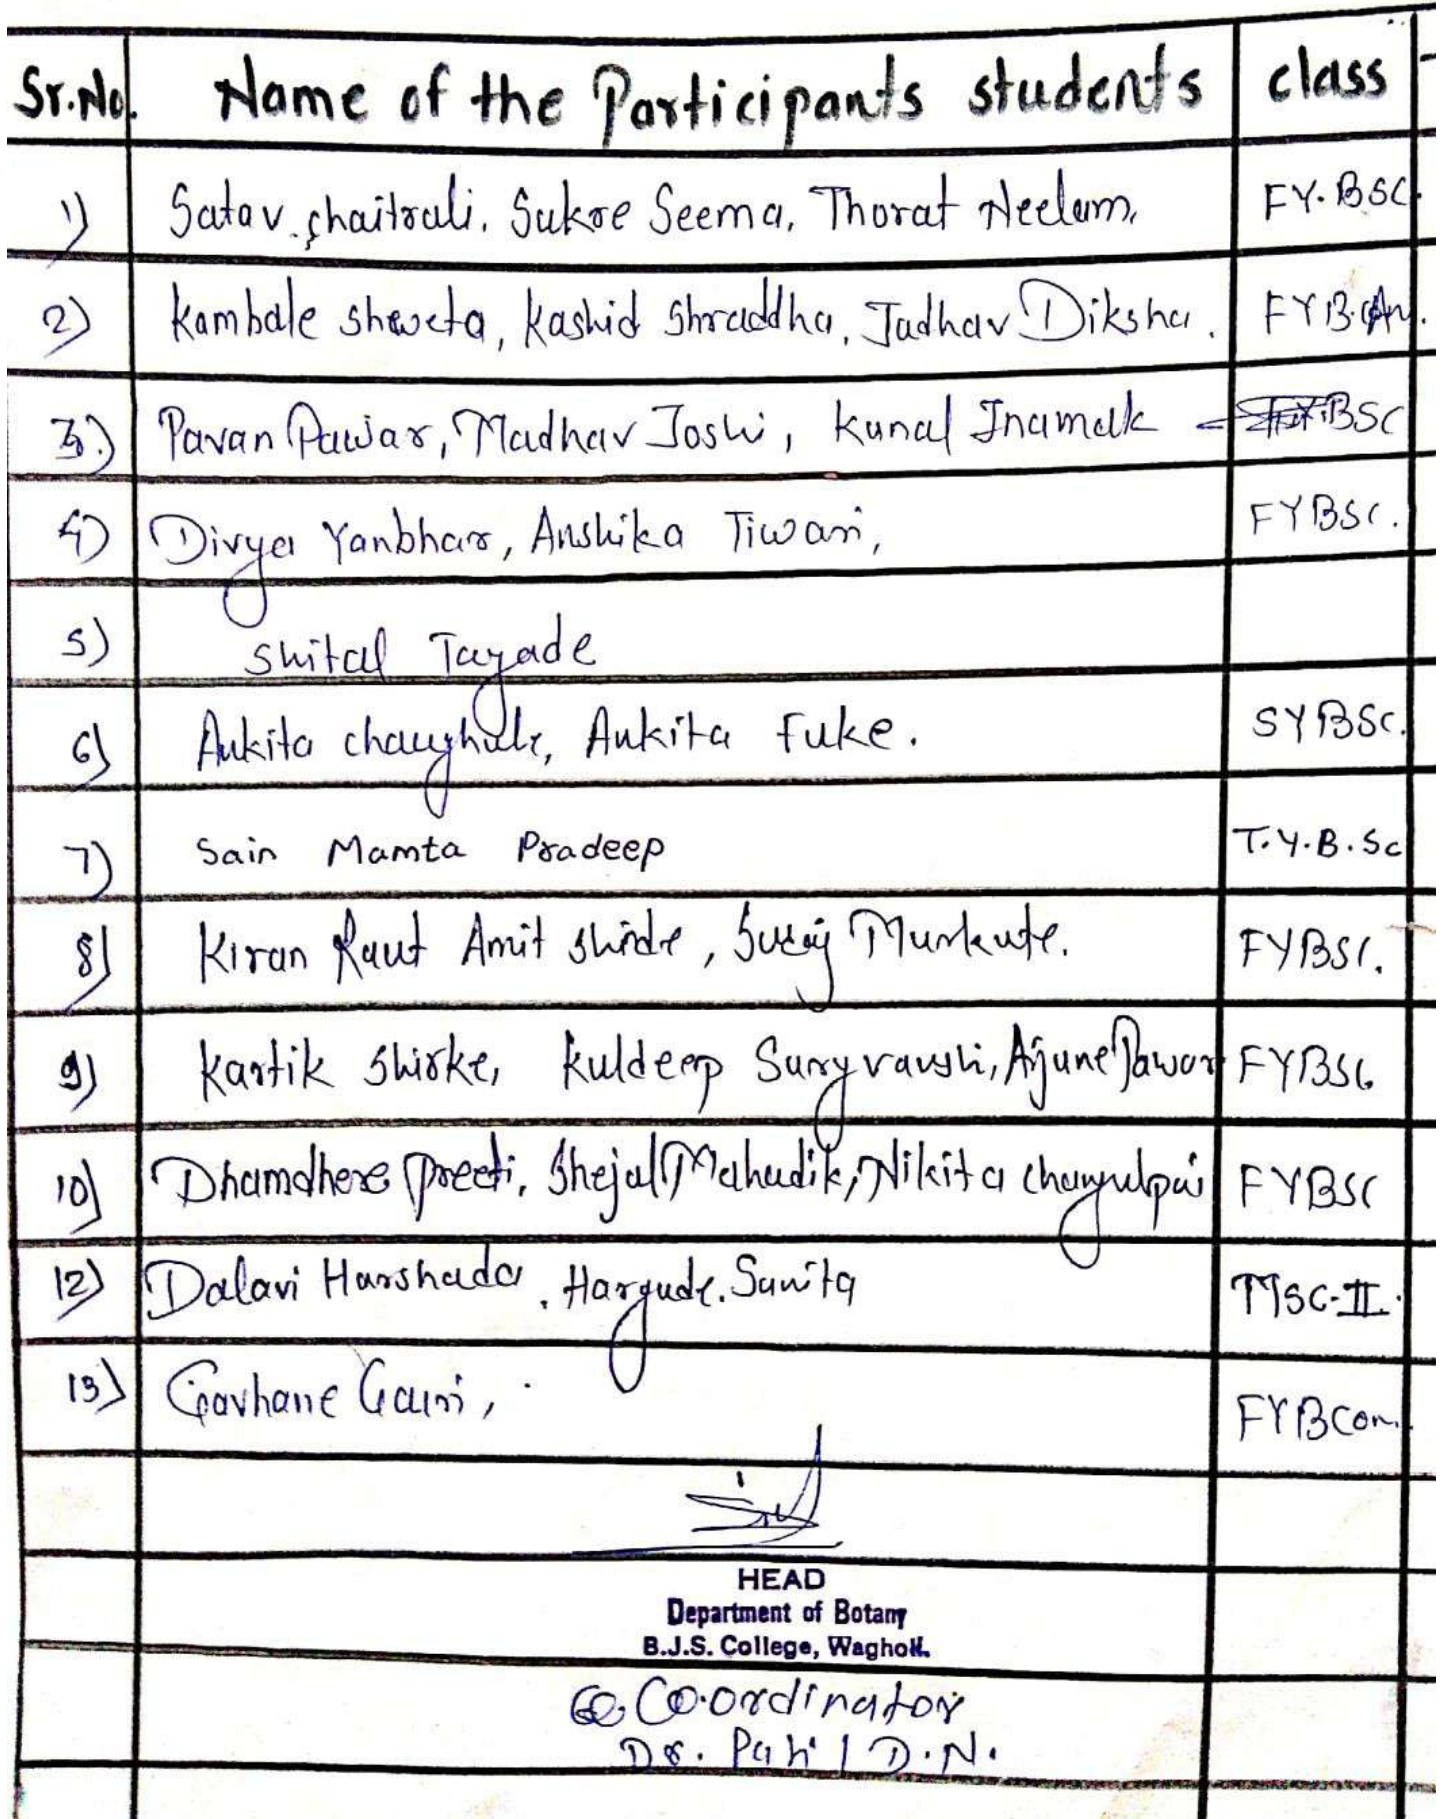 Sr.No. Name of the Participants students class
1) Satav chaitrali, Sukre Seema, Thorat Neelam, FY.BSC.
2) Kambale shweta, Kashid Shraddha, Jadhav Diksha. FYB.
3.) Pavan Pawar, Madhav Joshi, Kunal Inamak BSC
4) Divya Yanbhar, Anshika Tiwari, FYBSC.
5) Shital Tayade
6) Ankita chaughule, Ankita Fuke. SYBSC.
7) Sain Mamta Pradeep T.Y.B.Sc
8) Kiran Raut Amit shinde, Suraj Murkute. FYBSC.
9) Kartik Shirke, Kuldeep Suryvanshi, Arjune Pawar FYBSC.
10) Dhamdhere Preeti, Shejal Mahadik, Nikita FYBSC
12) Dalavi Harshada, Hargude. Sunita MSC-II.
13) Gavhane Gauri, FYBCom.
HEAD
Department of Botany
B.J.S. College, Wagholi.
Co.ordinator
Dr. Patil D.N.